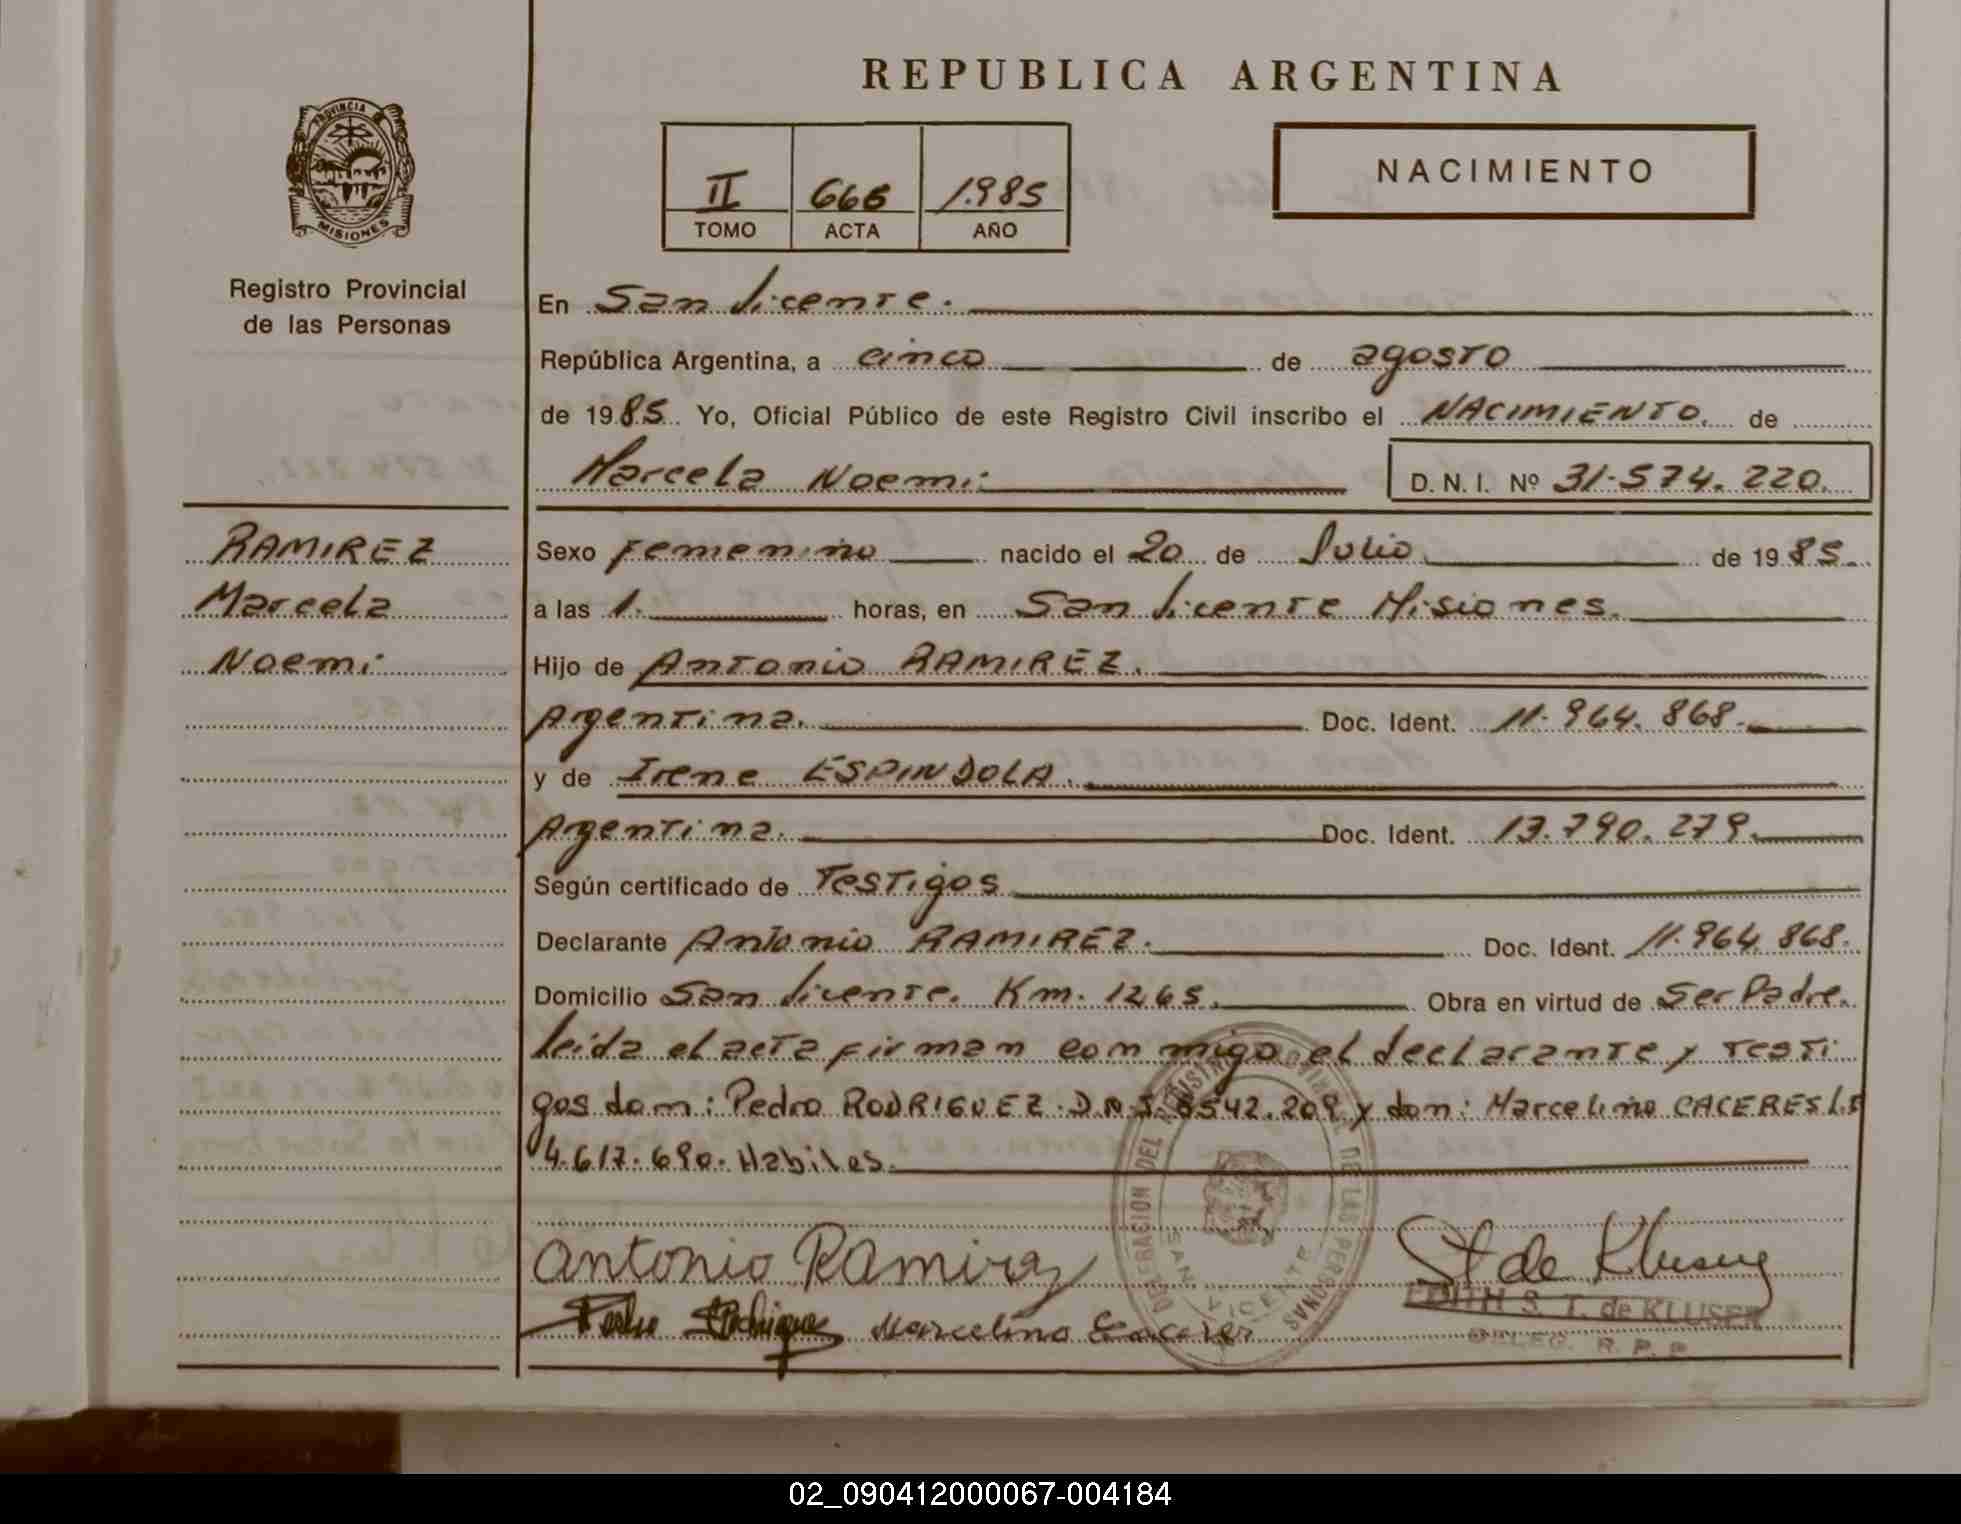 REPUBLICA ARGENTINA
PROVINCIA DE
MISIONES
Registro Provincial
de las Personas
II 666 1.985
TOMO ACTA AÑO
NACIMIENTO
En San Vicente.
República Argentina, a cinco de agosto
de 1985. Yo, Oficial Público de este Registro Civil inscribo el NACIMIENTO. de
Marcela Noemi D. N. I. Nº 31.574.220.
RAMIREZ
Marcela
Noemi
Sexo femenino nacido el 20 de Julio de 1985.
a las 1. horas, en San Vicente Misiones.
Hijo de Antonio RAMIREZ.
Argentina. Doc. Ident. 11.964.868.
y de Irene ESPINDOLA.
Argentina. Doc. Ident. 13.790.279.
Según certificado de Testigos
Declarante Antonio RAMIREZ. Doc. Ident. 11.964.868.
Domicilio San Vicente. Km. 1265. Obra en virtud de Ser Padre.
leida el acta firman conmigo el declarante y testi
gos dom: Pedro RODRIGUEZ. 8542.209 y don: Marcelino CACERES L.E
4.617.690. Habiles.
Antonio Ramirez
Pedro Rodriguez Marcelino Caceres
St de Kluser
EDITH S. T. de KLUSER
DELEG. R. P. P.
DELEGACION DEL REGISTRO PROVINCIAL DE LAS PERSONAS
SAN VICENTE
02_090412000067-004184